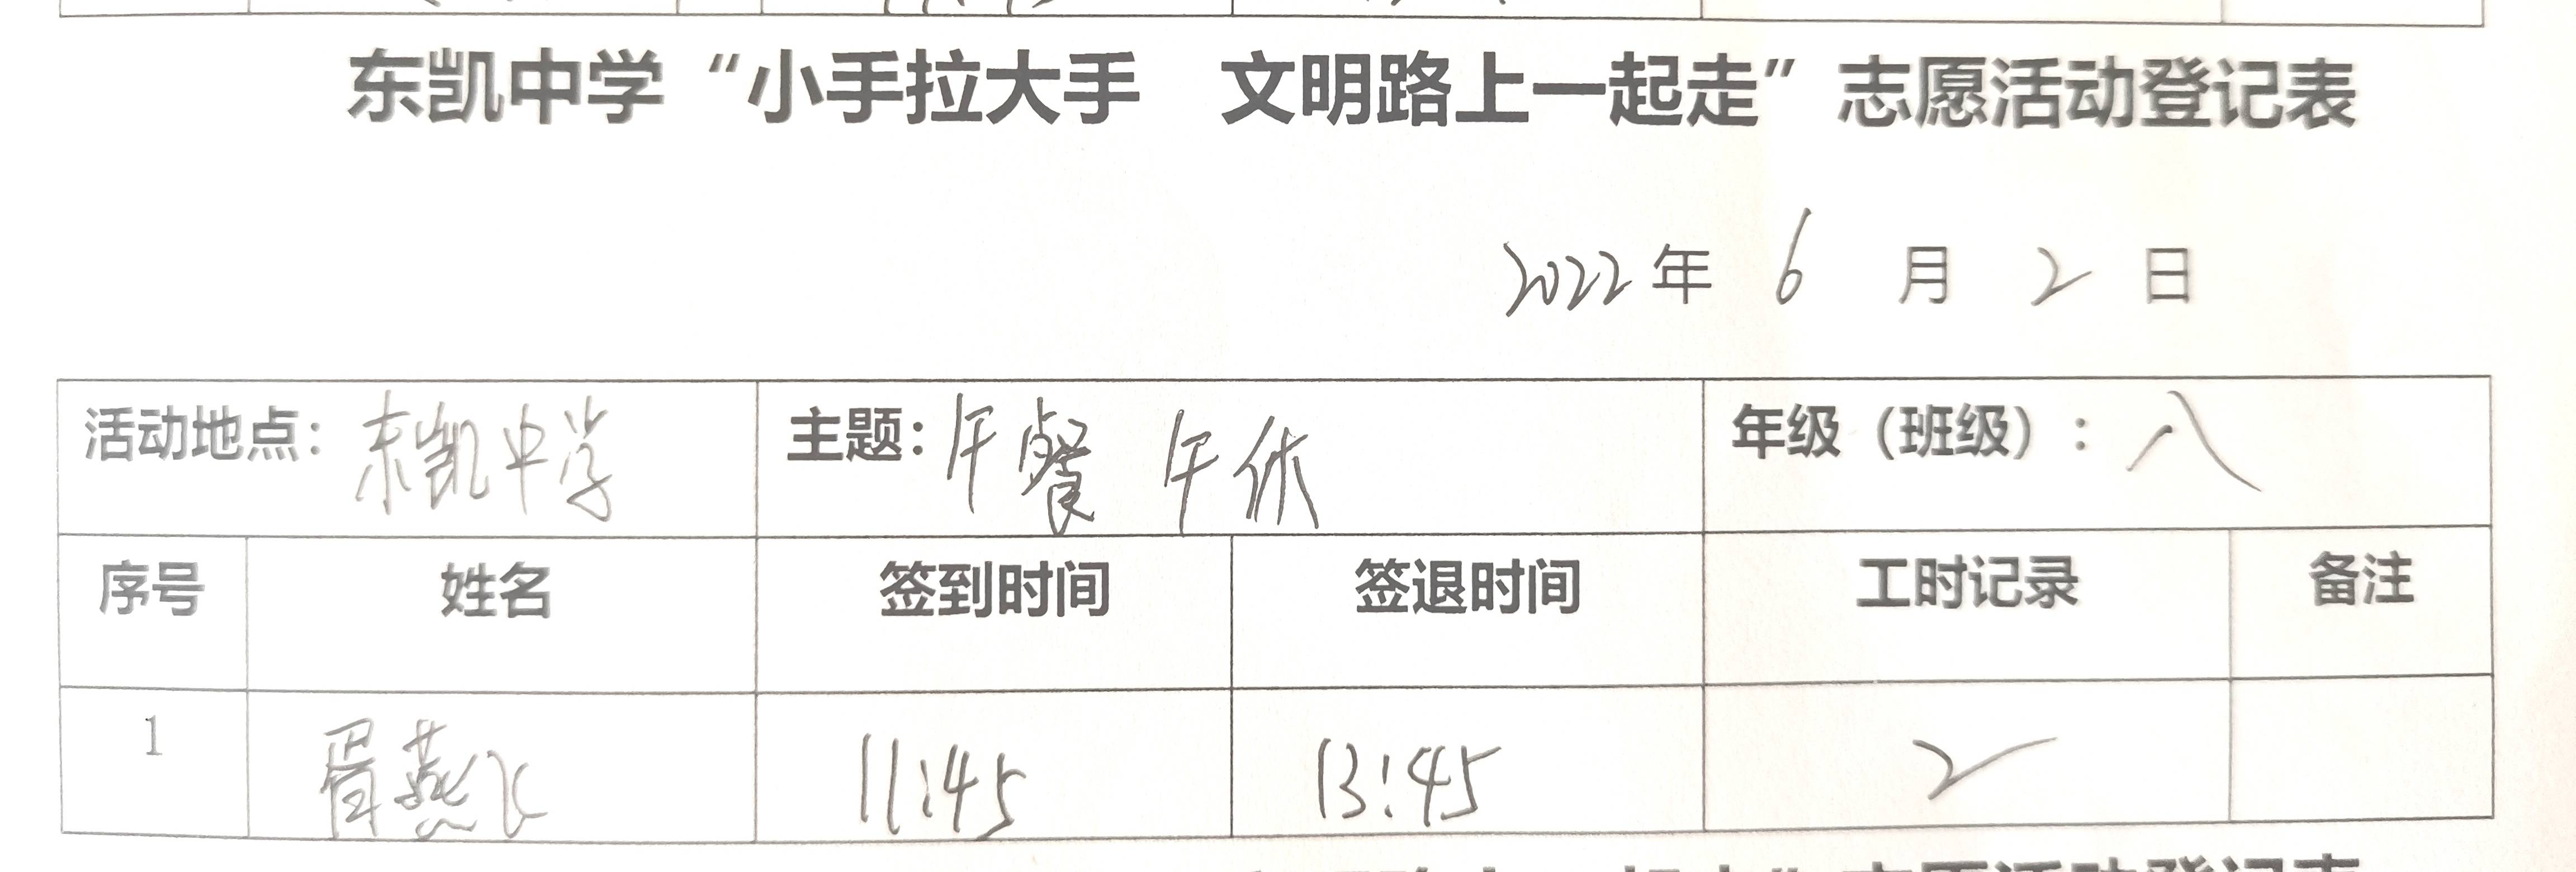 东凯中学“小手拉大手 文明路上一起走”志愿活动登记表
2022年 6 月 2 日
活动地点：东凯中学 主题：午餐 午休 年级（班级）：八
序号 姓名 签到时间 签退时间 工时记录 备注
1 胥燕飞 11:45 13:45 2